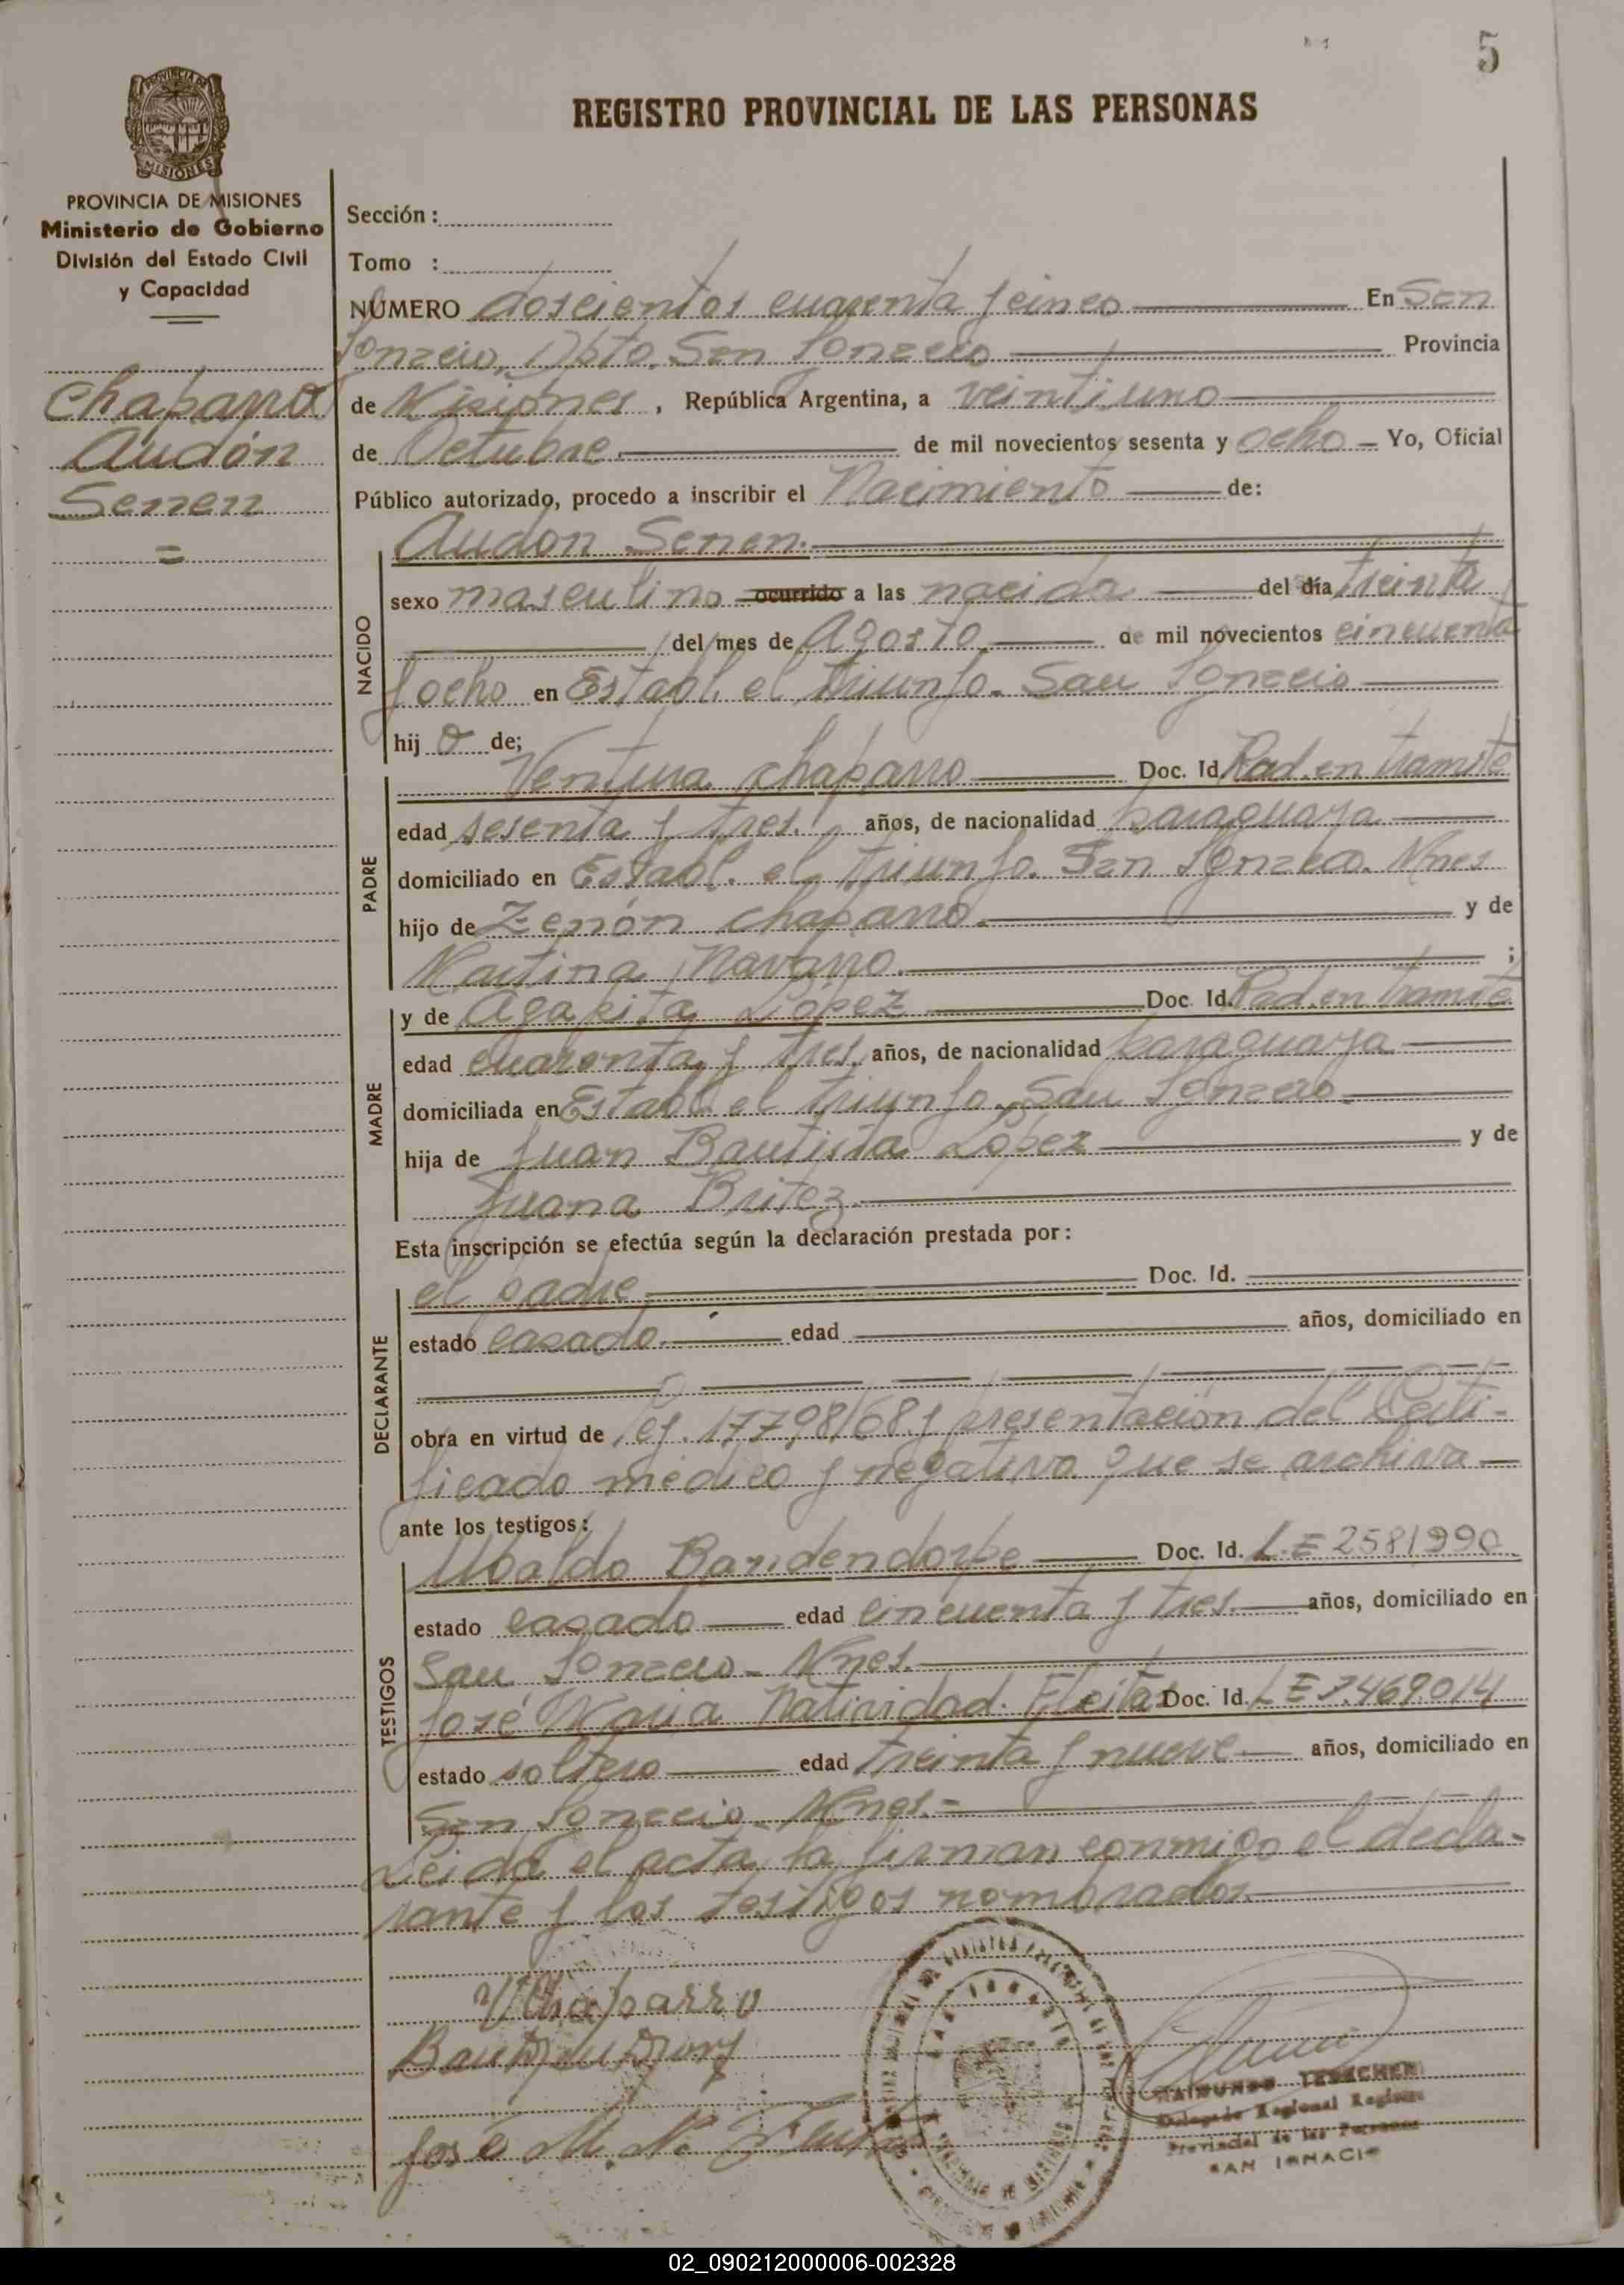 5
REGISTRO PROVINCIAL DE LAS PERSONAS
PROVINCIA DE MISIONES
MISIONES
PROVINCIA DE MISIONES
Ministerio de Gobierno
División del Estado Civil
y Capacidad
Chaparro
Audón
Senen
=
Sección :
Tomo :
NÚMERO doscientos cuarenta y cinco En San
Ignacio, Dpto. San Ignacio Provincia
de Misiones, República Argentina, a veintiuno
de Octubre de mil novecientos sesenta y ocho Yo, Oficial
Público autorizado, procedo a inscribir el Nacimiento de:
NACIDO
Audon Senen.
sexo masculino ocurrido a las nacida del día treinta
del mes de Agosto de mil novecientos cincuenta
y ocho en Establ. el triunfo. San Ignacio
hij o de;
PADRE
Ventura Chaparro Doc. Id. Rad. en tramite
edad sesenta y tres. años, de nacionalidad paraguaya
domiciliado en Establ. el triunfo. San Ignacio. Mnes
hijo de Zenón Chaparro. y de
Martina Navarro. ;
MADRE
y de Agapita López Doc. Id. Rad. en tramite
edad cuarenta y tres. años, de nacionalidad paraguaya
domiciliada en Establ. el triunfo. San Ignacio.
hija de Juan Bautista López y de
Juana Britez.
Esta inscripción se efectúa según la declaración prestada por:
DECLARANTE
el padre Doc. Id.
estado casado edad años, domiciliado en
obra en virtud de Ley. 17798/68 y presentación del Certi-
ficado médico y negativo que se archiva
ante los testigos:
TESTIGOS
Ubaldo Bandendorpe Doc. Id. L.E 2581990
estado casado edad cincuenta y tres. años, domiciliado en
San Ignacio - Mnes.
José Maria Natividad Fleitas Doc. Id. LE 7.469.014
estado soltero edad treinta y nueve años, domiciliado en
San Ignacio. Mnes.-
Leida el acta, la firman conmigo el decla-
rante y los testigos nombrados.
V Chaparro
José M. N.
RAIMUNDO
Delegado Regional Registro
Provincial de las Personas
SAN IGNACIO
02_090212000006-002328